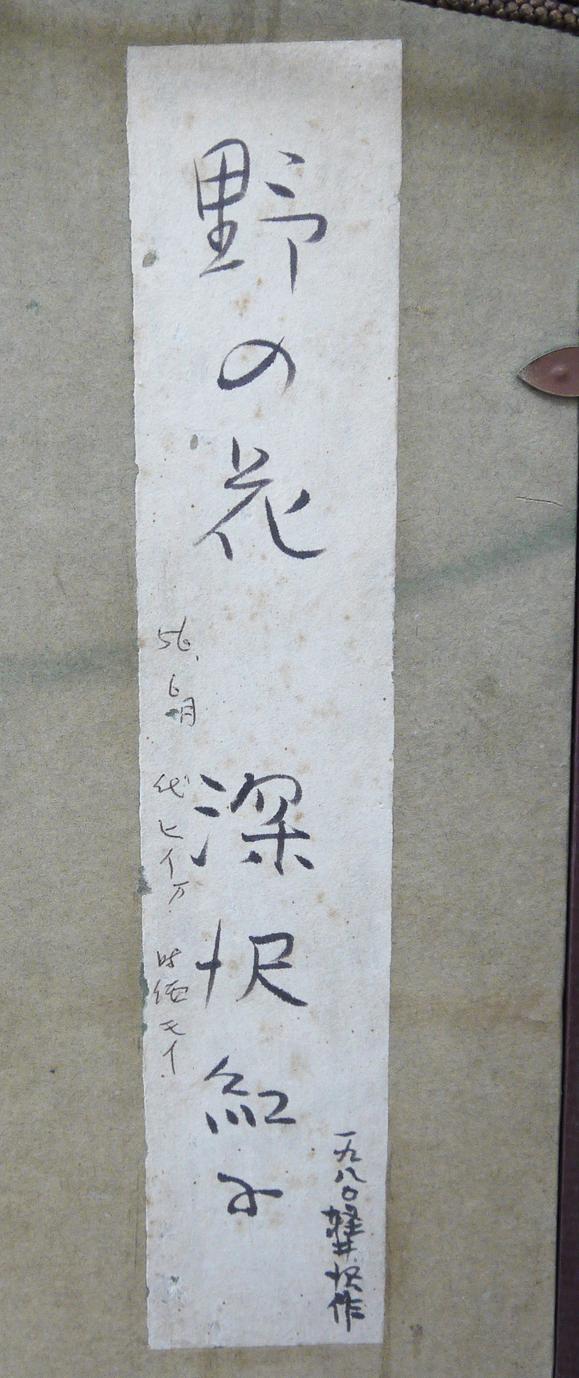 野の花　深沢紅子
一九八〇軽井沢作
56.6月　代ヒイ万　時価モイ